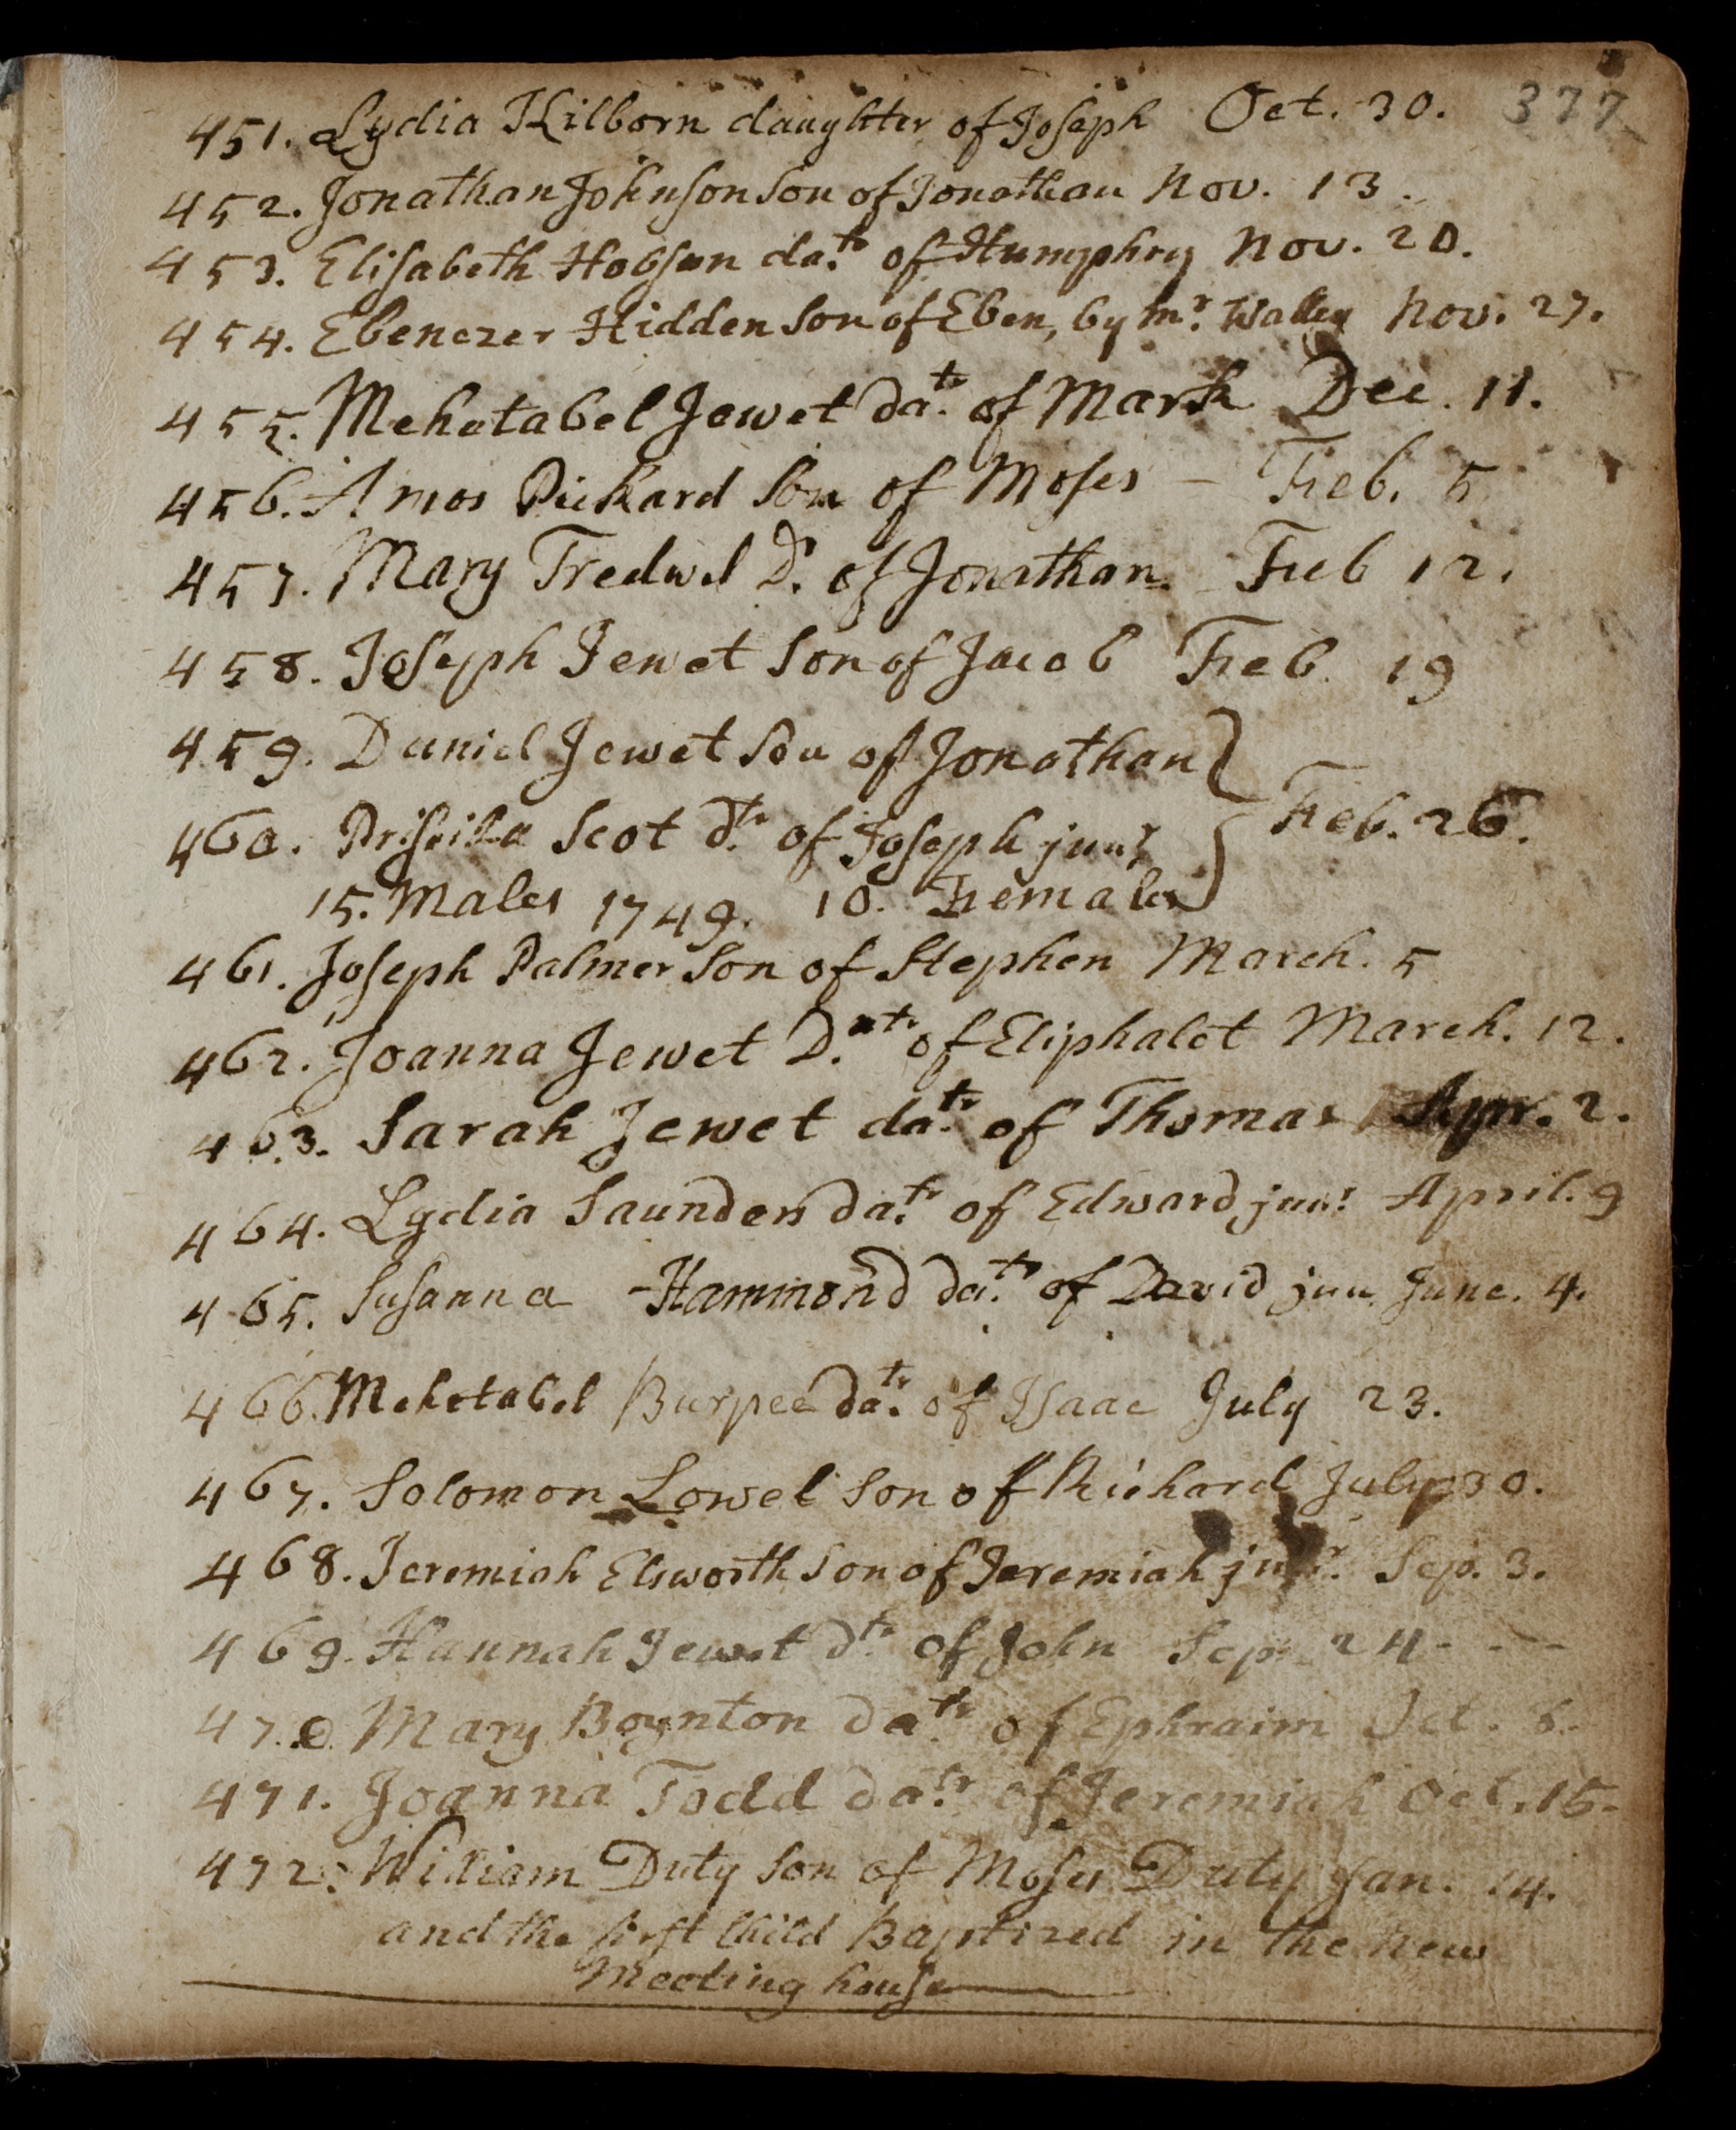 377
451. Lydia Kilborn daughter of Joseph Oct. 30.
452. Jonathan Johnson Son of Jonathan Nov. 13.
453. Elisabeth Hobson da.tr of Humphry Nov. 20.
454. Ebenezer Hidden Son of Eben, by mr. Walley Nov. 27.
455. Mehetabel Jewet da.tr of Mark Dec. 11.
456. Amos Pickard Son of Moses – Feb. 5
457. Mary Tredwel D. of Jonathan. Feb 12.
458. Joseph Jewet Son of Jacob Feb. 19
459. Daniel Jewet Son of Jonathan
460. Prisilla Scot d.tr of Joseph junr Feb. 26.
15. Males 1749. 10. Females
461. Joseph Palmer Son of Stephen March. 5
462. Joanna Jewet D.atr of Eliphalet March. 12.
463. Sarah Jewet da.tr of Thomas Apr. 2.
464. Lydia Saunders da.tr of Edward junr April. 9
465. Susanna Hammond da.tr of David jun June. 4.
466. Mehetabel Burpee da.tr of Isaac July 23.
467. Solomon Lowel Son of Richard July 30.
468. Jeremiah Elsworth Son of Jeremiah junr. Sep. 3.
469. Hannah Jewet d.tr of John Sep. 24 - - -
470. Mary Boynton da.tr of Ephraim Oct.
471. Joanna Todd da.tr of Jeremiah Oct. 15.
472. William Duty Son of Moses Duty Jan. 14.
and the first Child Baptized in the New
Meeting house